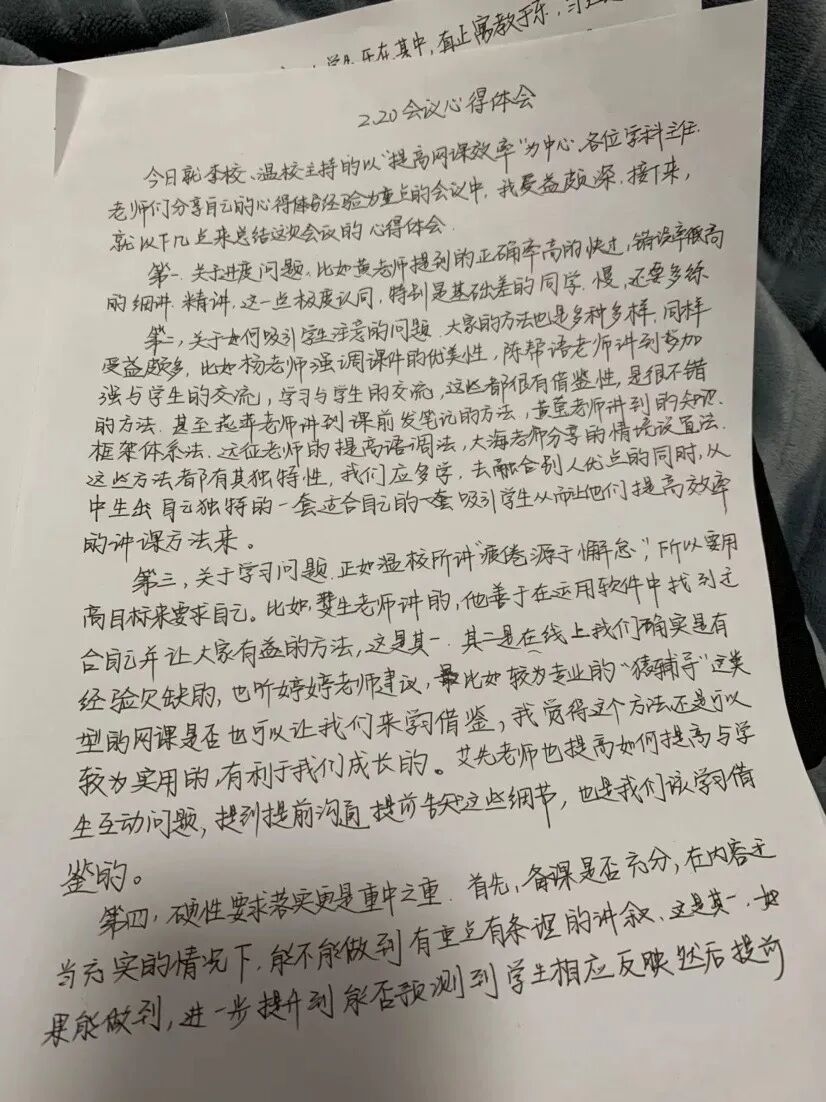 学生乐在其中，真正寓教于乐，
2.20会议心得体会
今日就李校、温校主持的以“提高网课效率”为中心，各位学科主任.
老师们分享自己的心得体会经验为重点的会议中，我受益颇深.接下来，
就以下几点来总结这次会议的心得体会.
第一.关于进度问题，比如黄老师提到的正确率高的快过，错误率很高
的细讲.精讲，这一点极度认同，特别是基础差的同学.慢，还要多练
第二，关于如何吸引学生注意的问题.大家的方法也是多种多样，同样
受益颇多，比如杨老师强调课件的优美性，陈帮语老师讲到多加
强与学生的交流，学习与学生的交流，这些都很有借鉴性，是很不错
的方法.甚至老师讲到课前发笔记的方法，黄老师讲到的知识.
框架体系法.远征老师的提高语调法，大海老师分享的情境设置法.
这些方法都有其独特性，我们应多学.去融合别人优点的同时，从
中生出自己独特的一套适合自己的一套吸引学生从而让他们提高效率
的讲课方法来。
第三，关于学习问题.正如温校所讲“疲倦源于懈怠”，所以要用
高目标来要求自己。比如，樊生老师讲的，他善于在运用软件中找到适
合自己并让大家有益的方法，这是其一.其二是在线上我们确实是有
经验欠缺的，也听婷婷老师建议，比如较为专业的“猿辅导”这类
型的网课是否也可以让我们来学习借鉴，我觉得这个方法还是可以
较为实用的，有利于我们成长的。艾先老师也提高如何提高与学
生互动问题，提到提前沟通提前告知这些细节，也是我们该学习借
鉴的。
第四，硬性要求落实更是重中之重.首先，备课是否充分，在内容适
当充实的情况下，能不能做到有重点有条理的讲叙、这是其一.如
果能做到，进一步提升到能否预测到学生相应反映然后提前